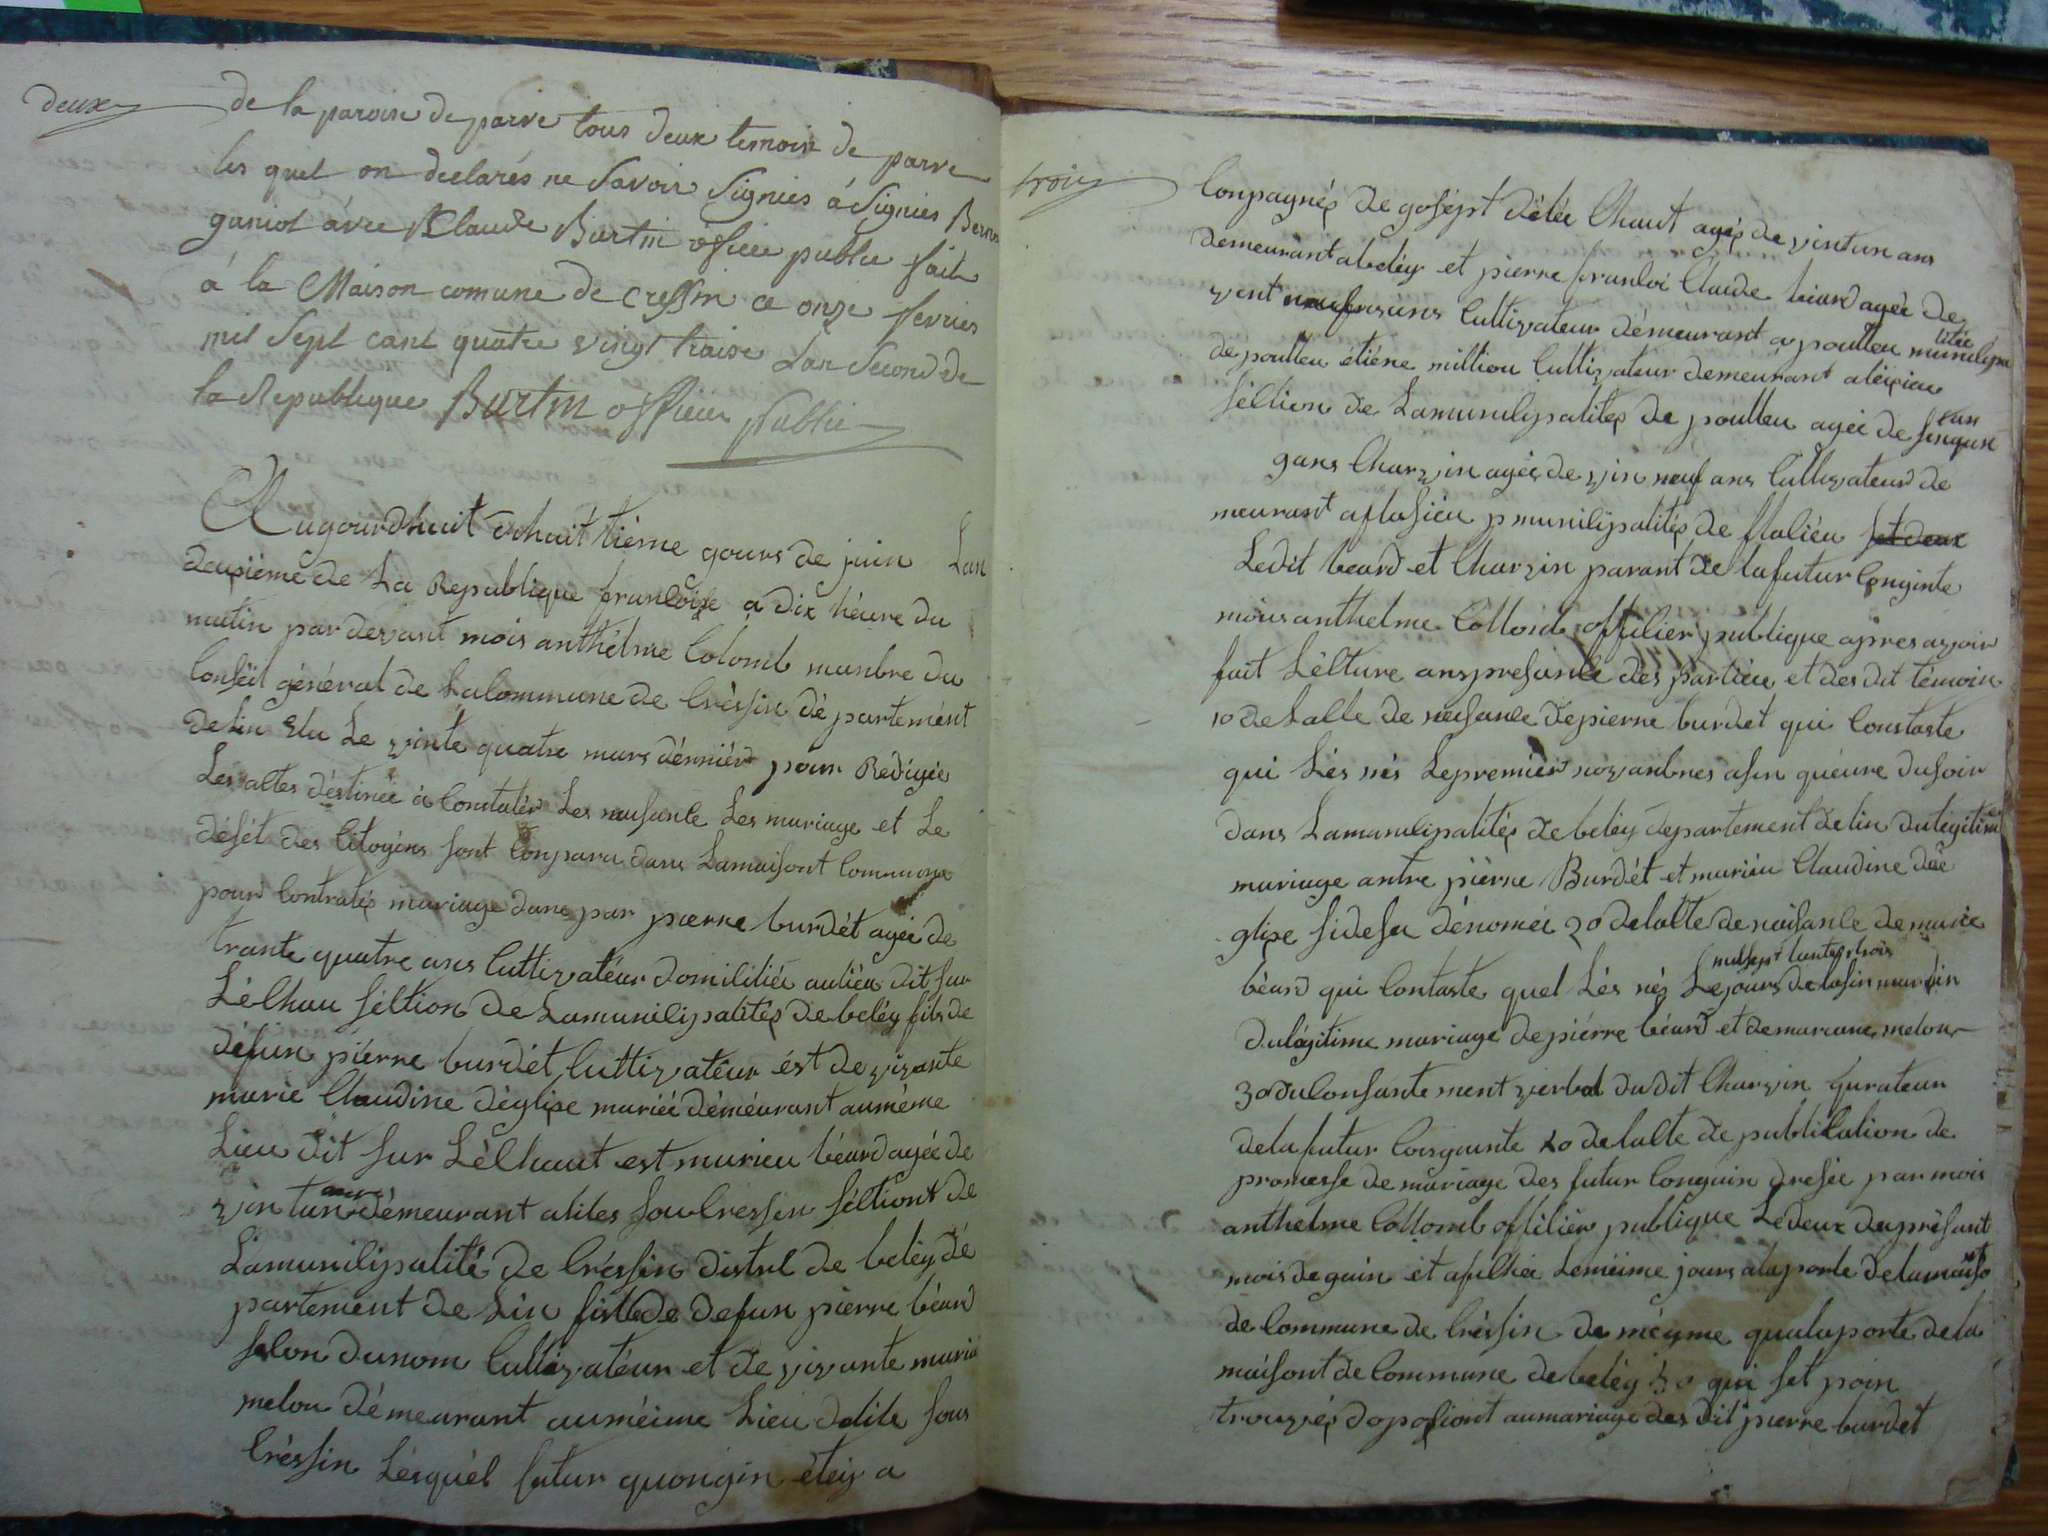 deux
de la paroise de parve tous deux temoin de parve
les quel on declarés ne Savoir Signies á Signies Bern
ganiot ávec Claude Burtin officie public fait
á la Maison comune de Cressin ce onze fevries
mil Sept cant quatre vingt traise Lan Second de
la Republique Burtin officier Public
Augourdhuit dhuit tiéme gours de juin Lan
deuxiéme de La Republique francoize a dix héure du
matin par devant mois anthélme Colomb manbre du
Conséil général de La Commune de Créssin département
de Lin Elu Le vinte quatre mars dérniér pour Redigée
Les actes déstinée á Constatér Les naisance Les mariage et Le
déset des Citoyéns sont Conparu dans Lamaisont Commune
pour Contratés mariage dune par pierre burdét agée de
trante quatre ans Cultivatéur domicilié aulieu dit sur
Lélhau séction de Lamunicipalités de beléy fils de
défun piérre burdét Cultivatéur ést de vivante
marie Claudine déglise mariée déméurant auméme
Lieu dit sur Lélhaut est marieu béard agée de
vin tun ans démeurant alites sou Cressin séctiont de
Lamunicipalité de Créssin distrl de beléy dé
partement de Lin fille de defun pierre béard
selon dunom Cultivatéur et de vivante marie
melon démeurant auméime Lieu dalite sous
Créssin Lésquél futur quongin étéiy a
trois
Conpagnés de gosept délée Chaut agés de vintun ans
demeurant abeléy et pierre francoi Claude béard agée de
vent neuf ans Cultivateur démeurant a poulleu municipa litée
de poulleu étiéne milliou Cultivateur demeurant aléixieu
séction de Lamunicipalités de poulleu agée de sinquan tan
gans Charvin agées de vin neuf ans Cultivateur de
meurant aflasieu municipalités de flaliéu
Ledit beard et Charvin parant de lafutur Conginte
mois anthelme Collomb officier publique apres avoir
fait Lécture anspresance des partieu et des dit témoin
10 de Lalte de naisance de pierre burdet qui Constaste
qui Lés nés Lepremier novanbres asin quéure dusoir
dans Lamunicipalités de beléy departement de lin dulégitime
mariage antre pierne Burdét et mariéu Claudine dée
glise sidesu dénomée 20 delalte de naisance de marie
béard qui Contaste quel Lés nés Lejours de lasin martin milsept santes trois
dulégitime mariage de piérre béard et demariane melon
30 du Consantement verbal dudit Charvin qurateur
delafutur Coigointe 40 delalte de publication de
promesse de mariage des futur Congoin dresée par mois
anthelme Collomb officiér publique Ledeux duprésant
mois de guin et afichée Leméime jours alaporte delamaiso
de Commune de Créssin de méyme qualaporte dela
maisont de Commune de beléy 50 qui set poin
trouvés doposiont aumariage des dit pierre burdet